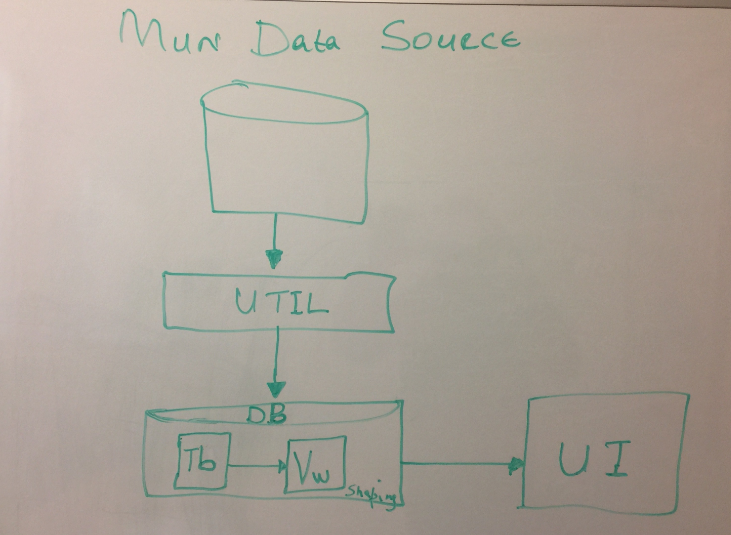 Mun Data Source
UTIL
DB
Tb
Vw
Shaping
UI